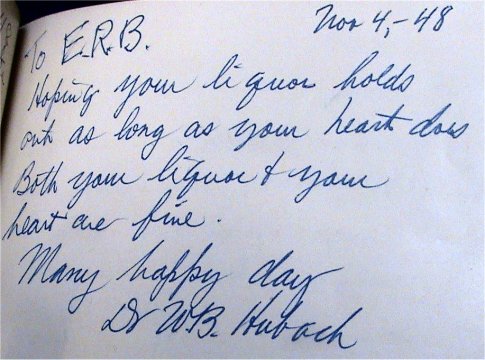 Nov 4, - 48
To E.R.B.
Hoping your liquor holds
out as long as your heart does
Both your liquor & your
heart are fine.
Many happy day
Dr W.B. Hubach